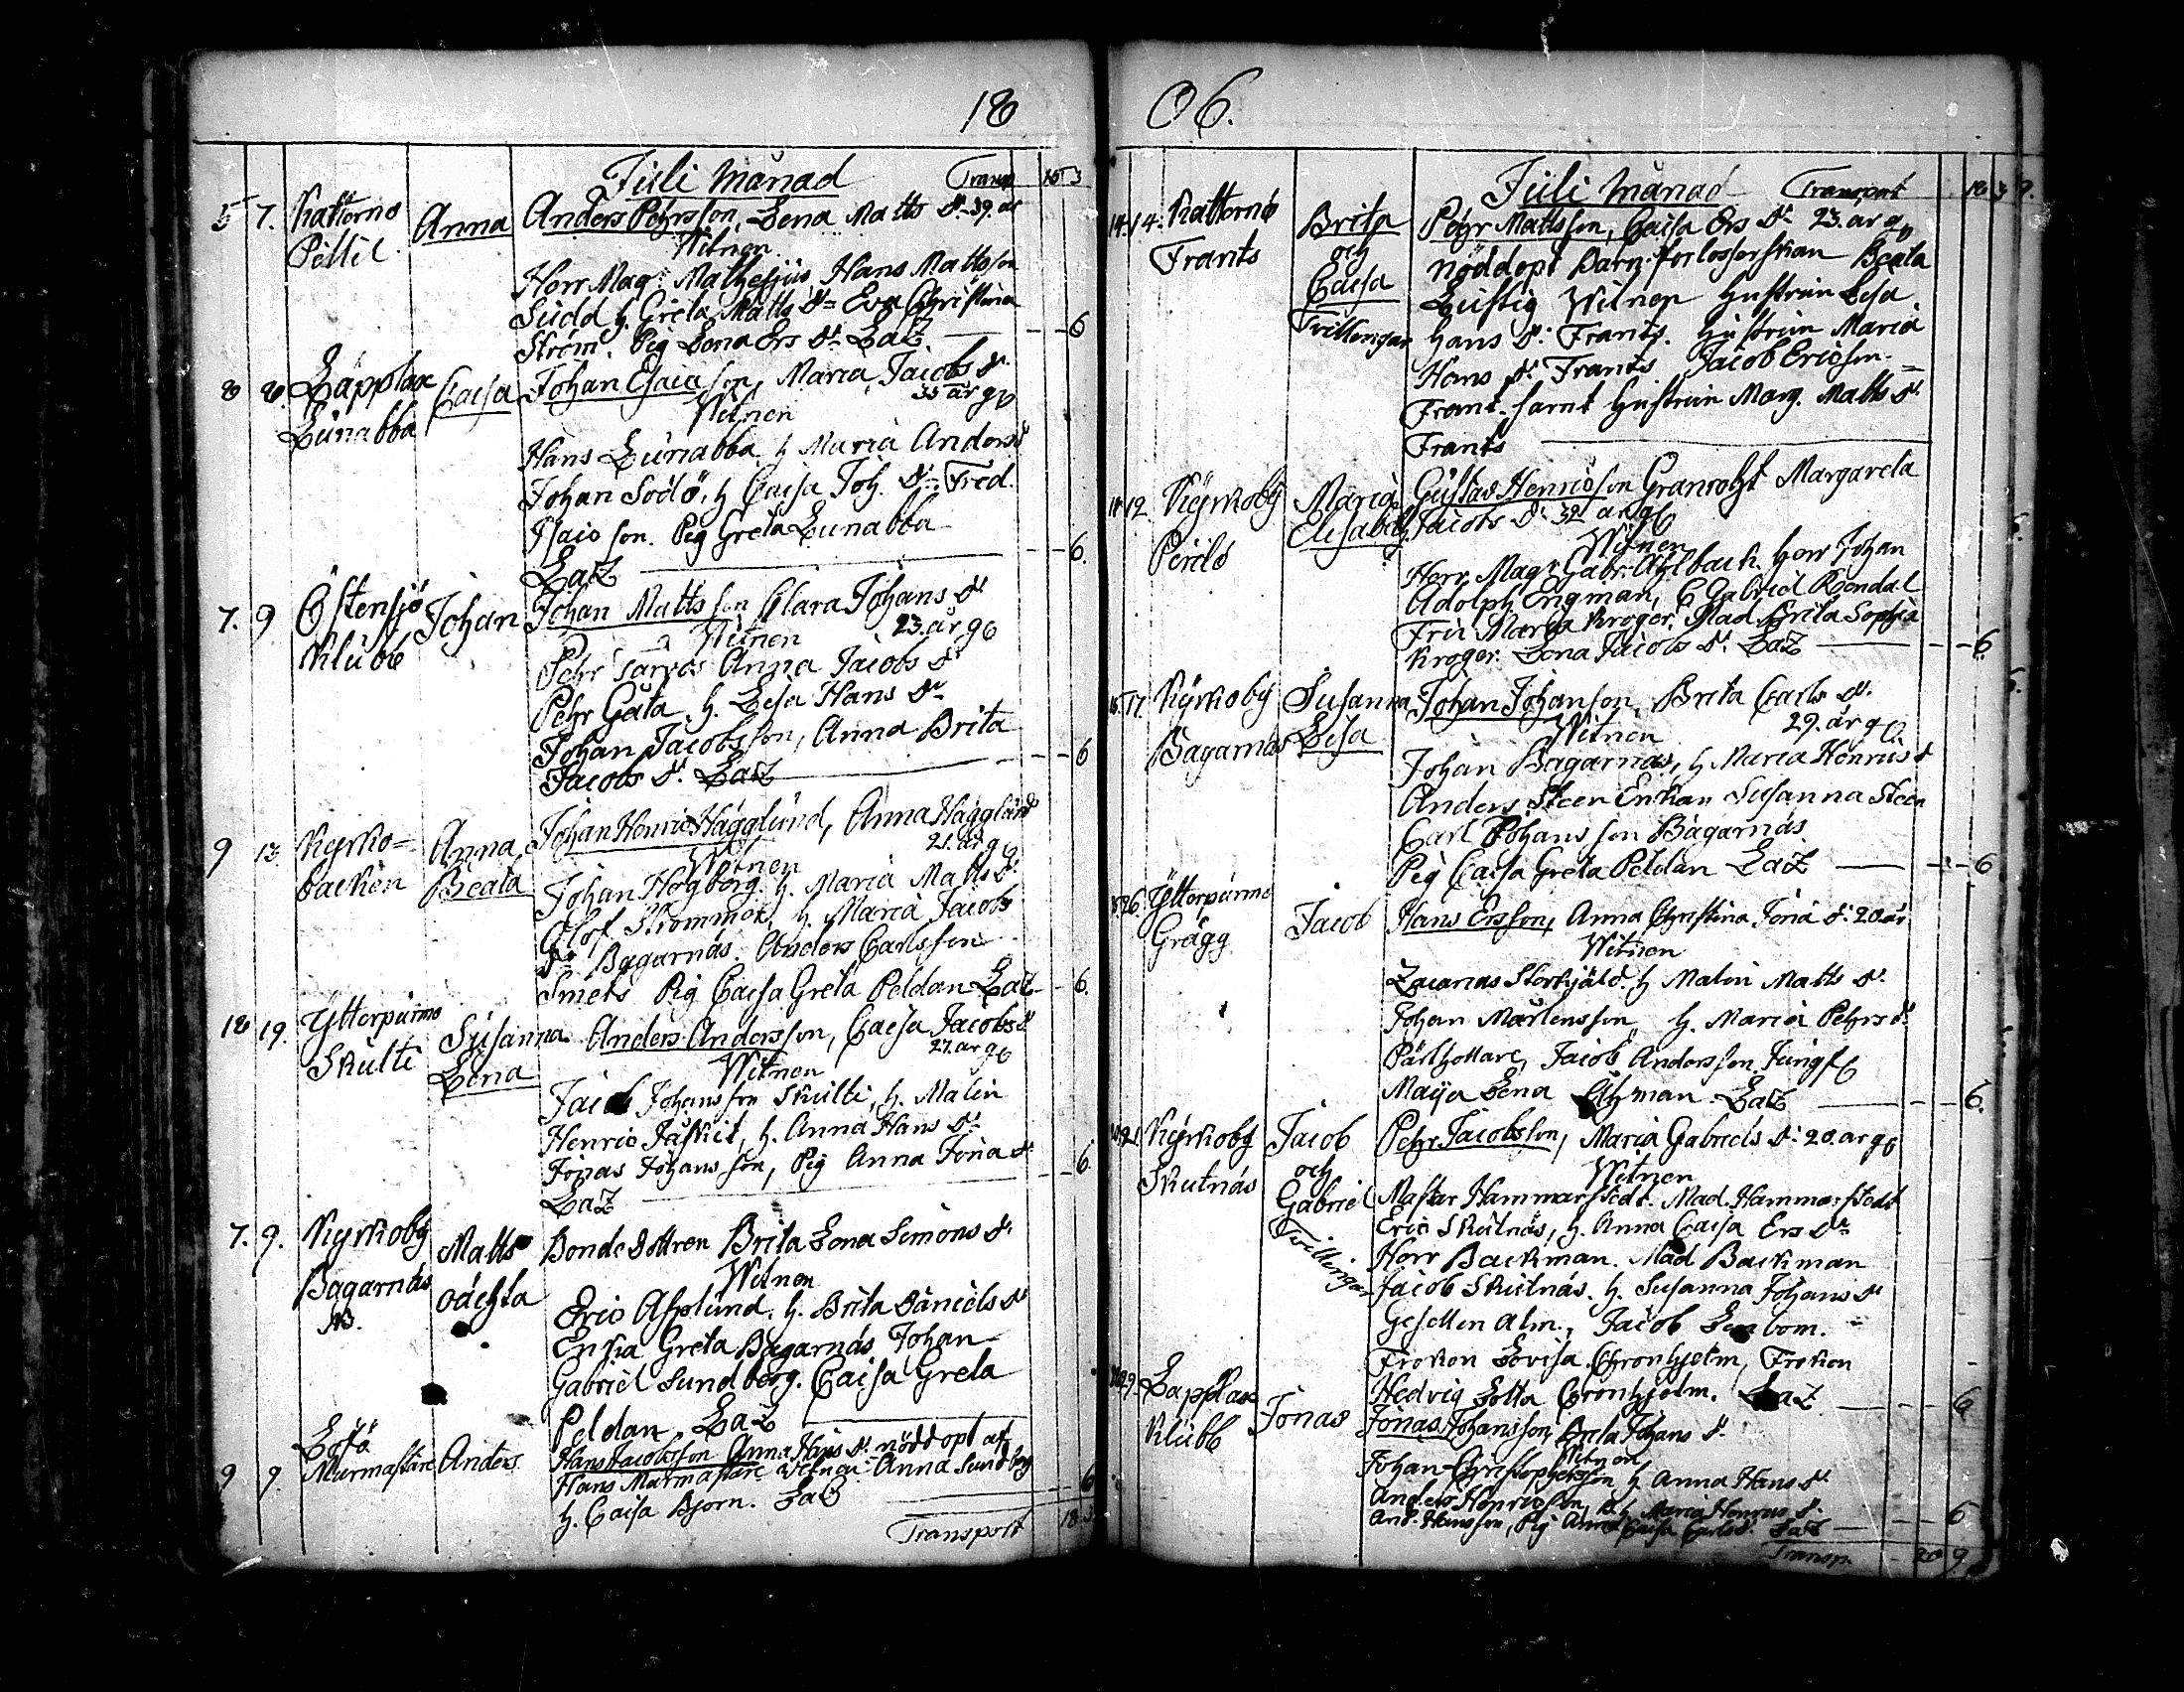 18
Juli Månad Transp 16 3
5 7. Katternö Anna Anders Pehrsson, Lena Matts dr 39. år
Pettil Witnen
Herr Mag: Mathesius Hans Mattsson
Sudd h. Greta Matts dr Eva Christina
Ström. Pig Lena Ers dr Laz. - - 6
8 8. Lappfax Caisa Johan Esaiasson, Maria Jacobs dr
35 år g
Lunabba Witnen
Hans Lunabba h Maria Anders d
Johan Sodö, h Caisa Joh. dr Fred.
Isaicson. Pig Greta Lunabba
Laz - - 6.
7. 9 Östensjö Johan Johan Mattsson Clara Johans dr
23. år g
Klubb Witnen
Pehr Anna Jacobs dr
Pehr Gäta h. Lisa Hans dr
Johan Jacobsson, Anna Brita
Jacobs dr. Laz - - 6
9 13. Kyrko= Anna Johan Henric Hägglund, Anna Hägglund
21. år g
backen Beata Witnen
Johan Högborg. h. Maria Matts dr
Olof Strömmer, h. Maria Jacobs
dr Bagarnäs. Anders Carlsson
Smeds Pig Caisa Greta Peldan Laz - 6.
18 19. Ytterpurmo Susanna Anders Andersson, Caisa Jacobs d
27. år g
Skulti Lena Witnen
Jacob Johansson Skulti, h. Malin
Henric Jäskit, h. Anna Hans dr
Jonas Johansson, Pig Anna Jona dr
Laz - 6.
7. 9. Kyrkoby Matts Bondedottren Brita Lena Simons dr
Bagarnäs oächta Witnen
NB. Eric Asplund, h. Brita Daniels dr
Enkia Greta Bagarnäs Johan
Gabriel Sundberg. Caisa Greta
Peldan Laz
9 9. Lösö Anders Hans Jacobsson Anna Hans dr nöddopt af
Murmastare Hans Murmastare Witnen Anna Sundberg
h. Caisa Björn. Laz 6
Transport 18.3
06.
Juli Månad Transport 18 3 9.
14. 14. Katternö Brita Pehr Mattsson, Caisa Ers dr 23. år g
Frants och nöddopt Barn förlosserskan Beata
Caisa Lustig Witnen Hustrun Lisa
Tvillingar Hans dr. Frants. Hustrun Maria
Hans dr. Frants Jacob Ericson
Frant. samt Hustrun Marg. Matts dr
Frants
11 12. Kyrkoby Maria Gustav Henricson Granrolht Margareta
Perilö Elisabeth Jacobs dr 32 år g
Witnen
Herr Magr Gabr. Ahlbach. Herr Johan
Adolph Engman, C Gabriel Rendal
Fru Maria Kroger. Mad Brita Sophia
Kroger. Lena Jacobs dr. Laz - - 6.
15. 17. Kyrkoby Susanna Johan Johanson, Brita Carls dr.
29. år g
Bagarnäs Lisa Witnen
Johan Bagarnäs, h Maria Henrics d
Anders Steen Enkan Susanna Steen
Carl Johansson Bagarnäs
Pig Caisa Greta Peldan Laz - - 6
26. Ytterpurmo Jacob Hans Ersson, Anna Christina Jona dr. 20. år
Grägg Witnen
Zacarias Storkjäld. h Malin Matts dr.
Johan Mårtensson h. Maria Pehrs dr
Parthollare, Jacob Andersson Jungf
Maija Lena Åhman Laz - - 6.
21. Kyrkoby Jacob Pehr Jacobsson, Maria Gabriels dr. 20. år g
Skutnäs och Witnen
Gabriel Mastar Hammarstedt. Mad. Hammarstedt
Tvillingar Eric Skutnäs, h. Anna Caisa Ers dr
Herr Backman. Mad Backman
Jacob Skutnäs. h. Susanna Johans dr
Gesellen Alm., Jacob Lenbom.
Fröken Lovisa Cronhjelm, Fröken
Hedvig Lotta Cronhjelm. Laz - - 6
29. Lappfax Jonas Jonas Johansson Brita Johans dr
Klubb Witnen
Johan Christophersson h Anna Hans dr.
Anders Henricson, h. Maria Henrics dr.
And. Hansson, Pig Anna Caisa Carls d. Laz - - 6
Transp. 20 9